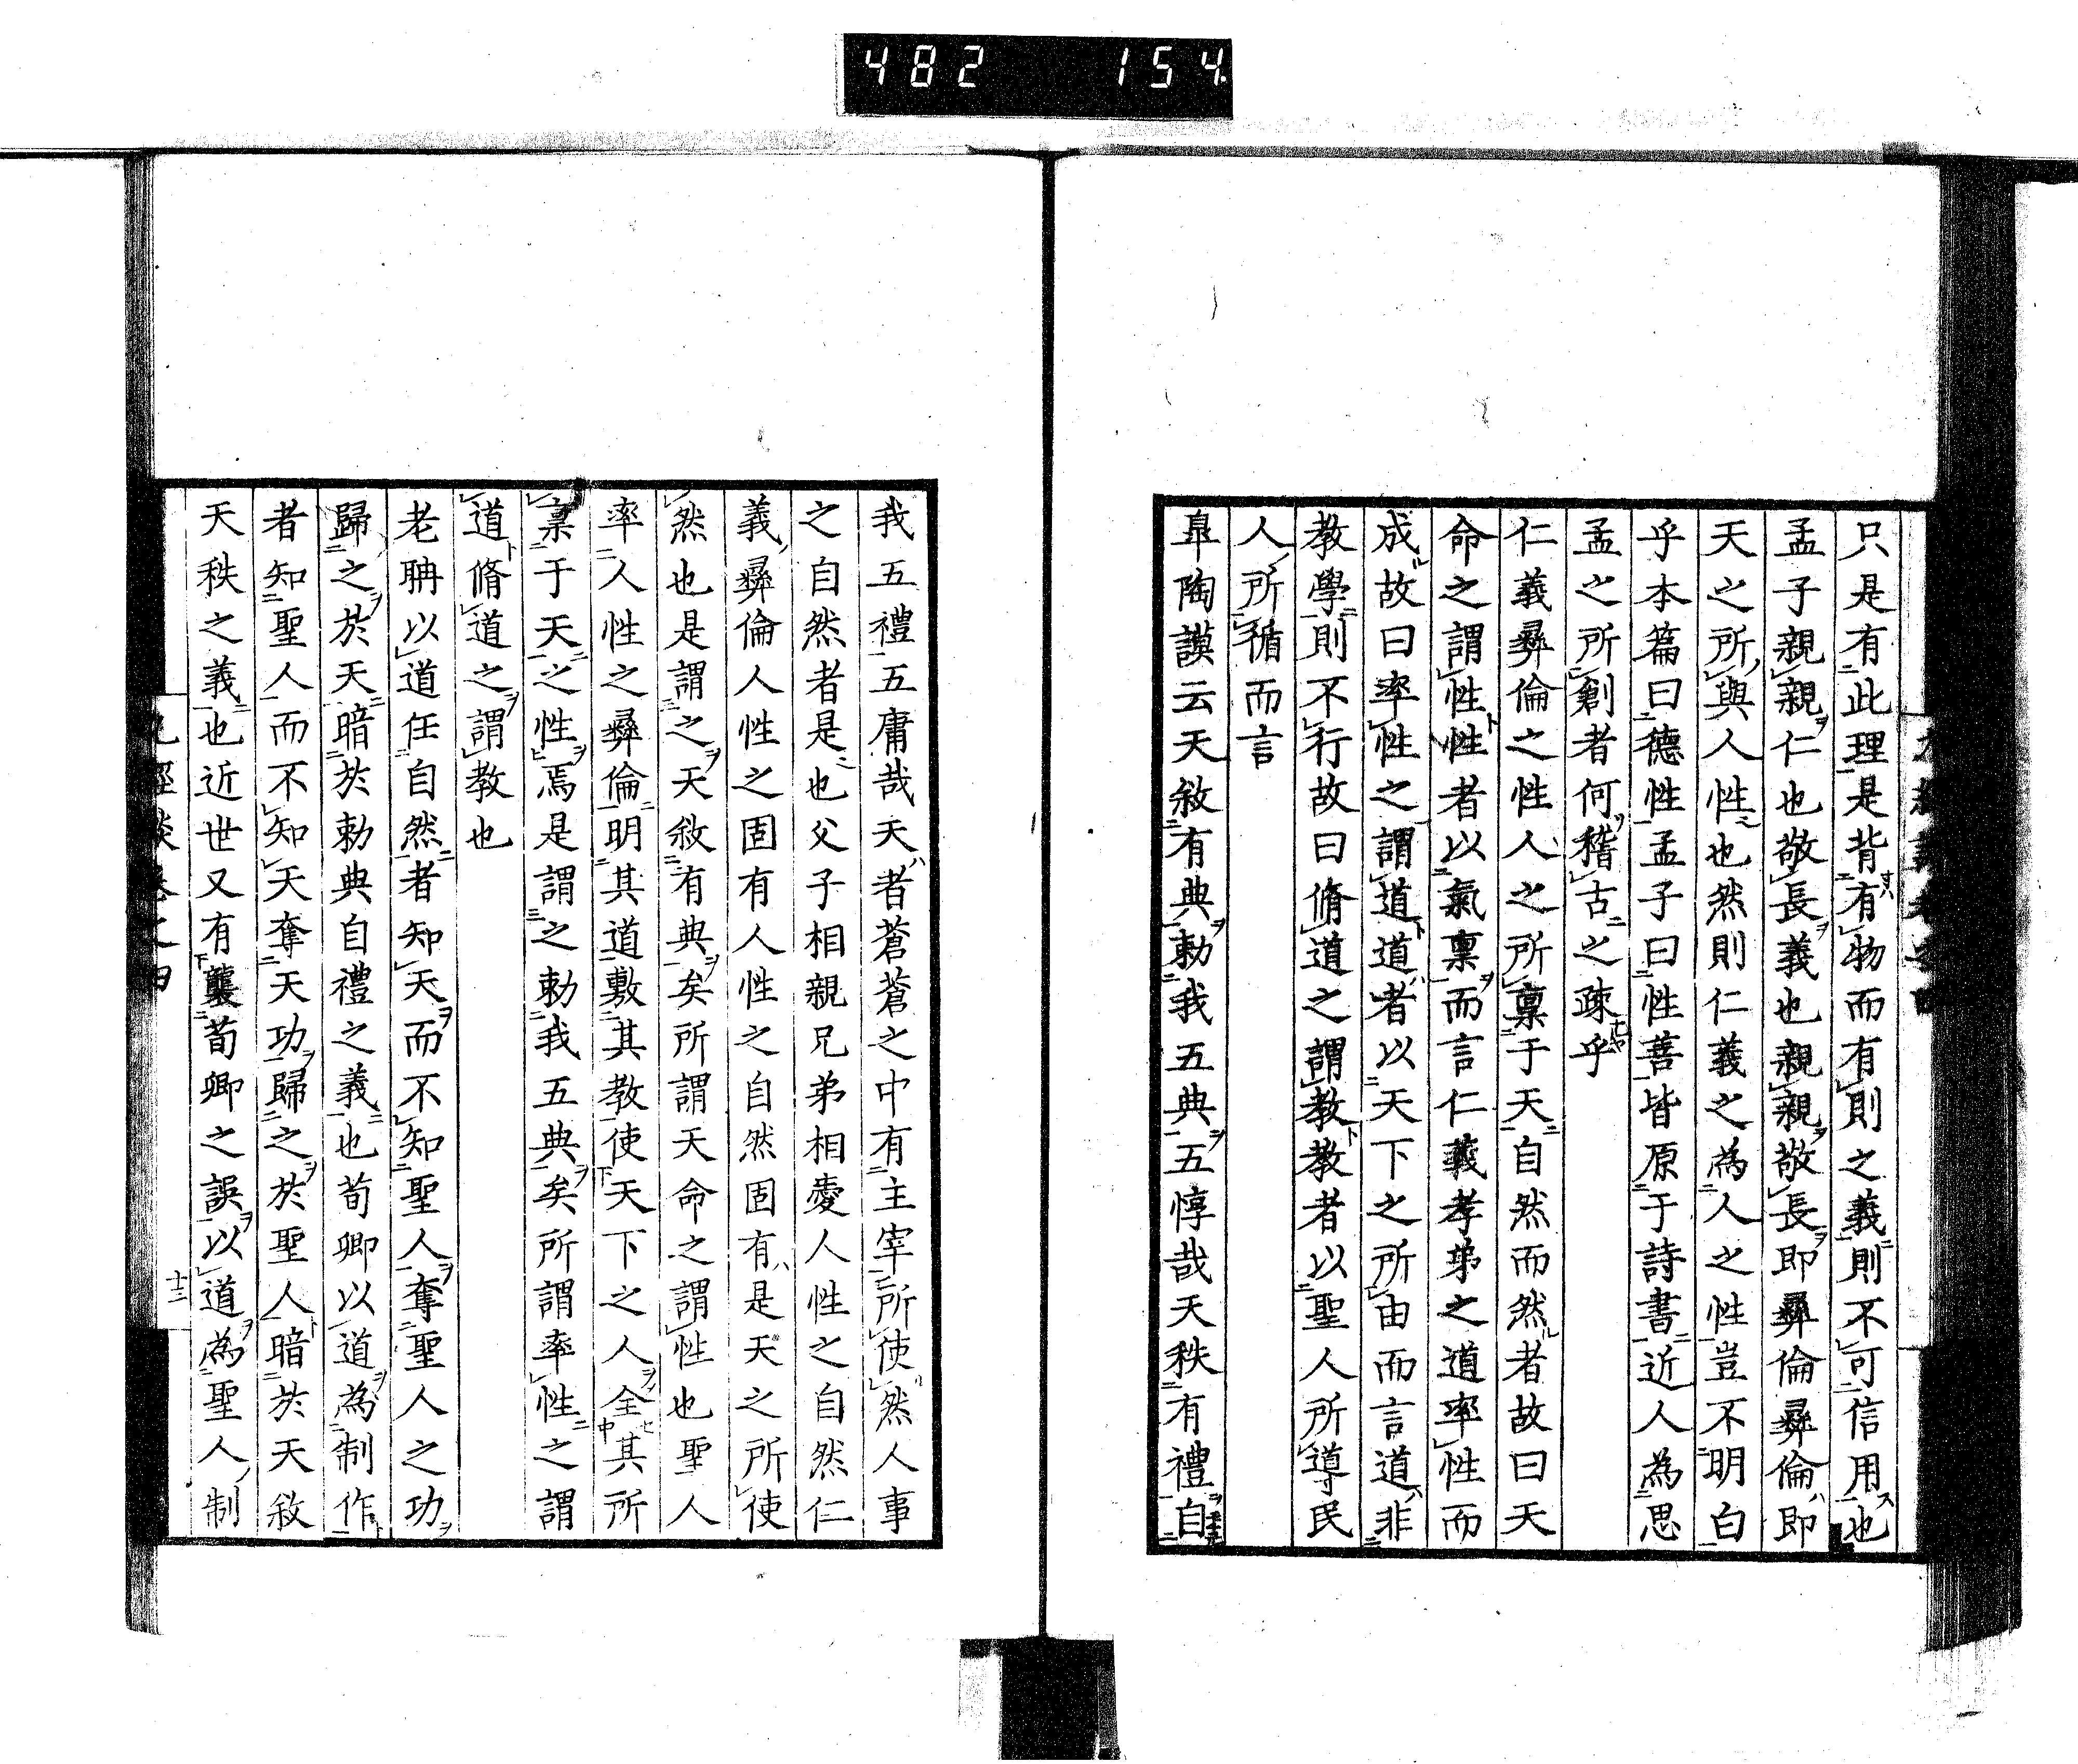 482 154
只是有此理是背有物而有則之義則不可信用也
孟子親親仁也敬長義也親親敬長即彝倫彝倫即
天之所與人性也然則仁義之為人之性豈不明白
乎本篇曰德性孟子曰性善皆原于詩書近人為思
孟之所創者何稽古之疎乎
仁義彝倫之性人之所稟于天自然而然者故曰天
命之謂性性者以氣稟而言仁義孝弟之道率性而
成故曰率性之謂道道者以天下之所由而言道非
教學則不行故曰脩道之謂教教者以聖人所導民
人所循而言
皐陶謨云天敘有典勅我五典五惇哉天秩有禮自
我五禮五庸哉天者蒼蒼之中有主宰所使然人事
之自然者是也父子相親兄弟相愛人性之自然仁
義彝倫人性之固有人性之自然固有是天之所使
然也是謂之天敘有典矣所謂天命之謂性也聖人
率人性之彝倫明其道敷其教使天下之人全其所
稟于天之性焉是謂之勅我五典矣所謂率性之謂
道脩道之謂教也
老聃以道任自然者知天而不知聖人奪聖人之功
歸之於天暗於勅典自禮之義也荀卿以道為制作
者知聖人而不知天奪天功歸之於聖人暗於天敘
天秩之義也近世又有襲荀卿之誤以道為聖人制
九經談卷之四
十二